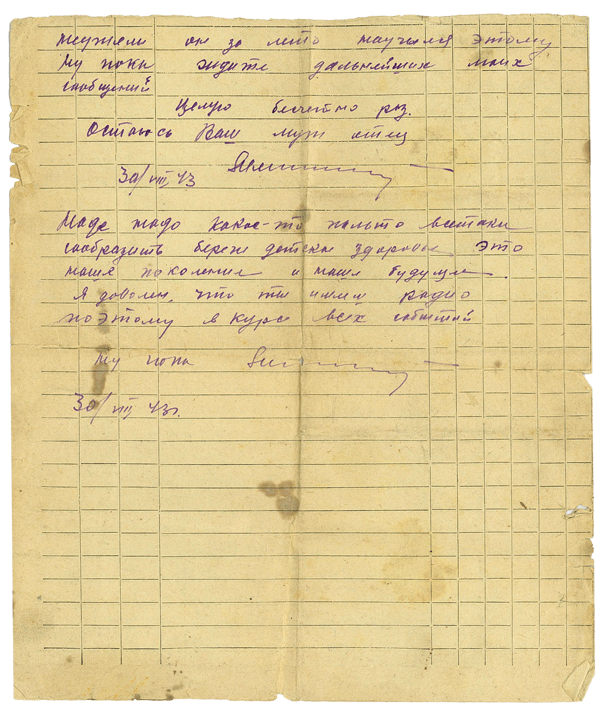 неужели он за лето научился этому
Ну пока ждите дальнейших моих
сообщений
Целую бесчетно раз.
Остаюсь Ваш муж отец
30/VIII 43
Наде надо какое-то пальто всетаки
сообразить береги детское здоровье это
наше поколение и наше будущее.
Я доволен, что ты имеешь радио
поэтому в курсе всех событий
Ну пока
30/VIII 43г.